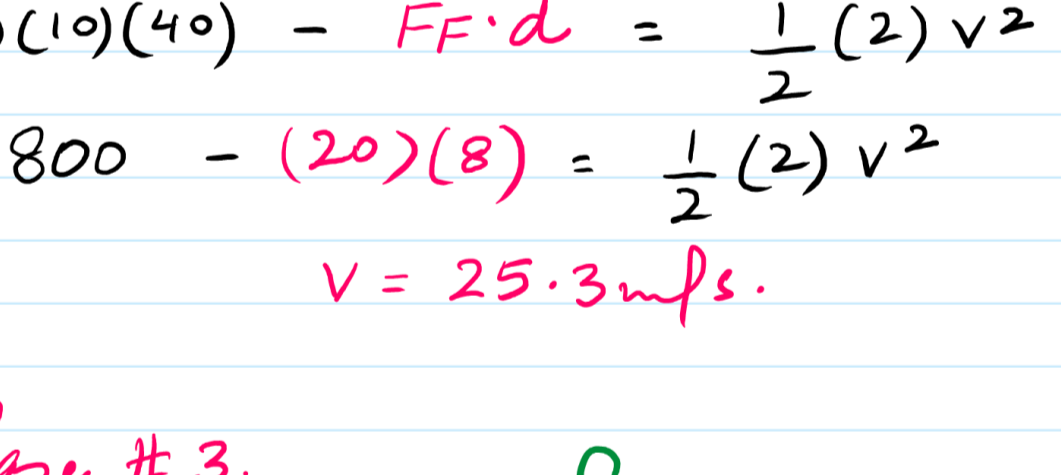 (10)(40) - FF·d = 1/2 (2) v²
800 - (20)(8) = 1/2 (2) v²
v = 25.3 m/s.
# 3.